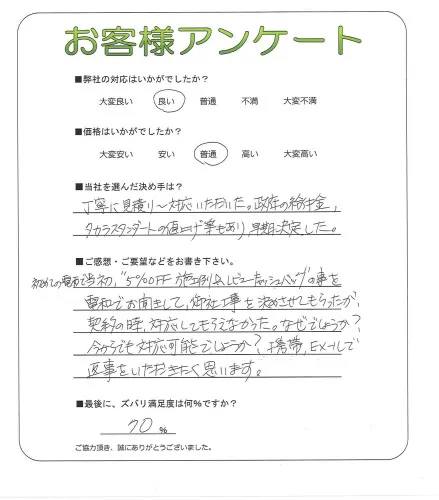 お客様アンケート
■弊社の対応はいかがでしたか？
大変良い 良い 普通 不満 大変不満
■価格はいかがでしたか？
大変安い 安い 普通 高い 大変高い
■当社を選んだ決め手は？
丁寧に見積り〜対応いただいた。政府の給付金、
タカラスタンダートの値上げ等もあり、早期決定した。
■ご感想・ご要望などをお書き下さい。
初めての電話で当初、"5%OFF 施工例&レビューキャッシュバック"の事を
電話でお聞きして、御社工事を決めさせてもらったが、
契約の時、対応してもらえなかった。なぜでしょうか？
今からでも対応可能でしょうか？携帯、Eメールで
返事をいただきたく思います。
■最後に、ズバリ満足度は何%ですか？
70 %
ご協力頂き、誠にありがとうございました。